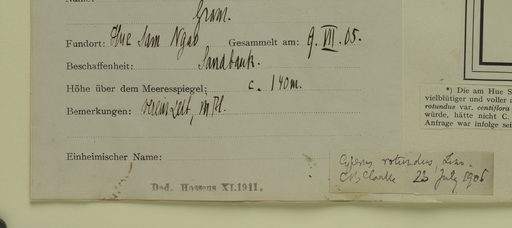 Name:
Gram.
Fundort: Hue Sam Ngao Gesammelt am: 9. VII. 05.
Beschaffenheit: Sandbank.
Höhe über dem Meeresspiegel: c. 140m.
Bemerkungen:
Einheimischer Name:
Ded. Hosseus XI.1911.
Cyperus rotundus, Linn.
CB Clarke 22 July 1906
*) Die am Hue S
vielblütiger und voller a
rotundus var. centiflora
würde, hätte nicht C.
Anfrage war infolge sei